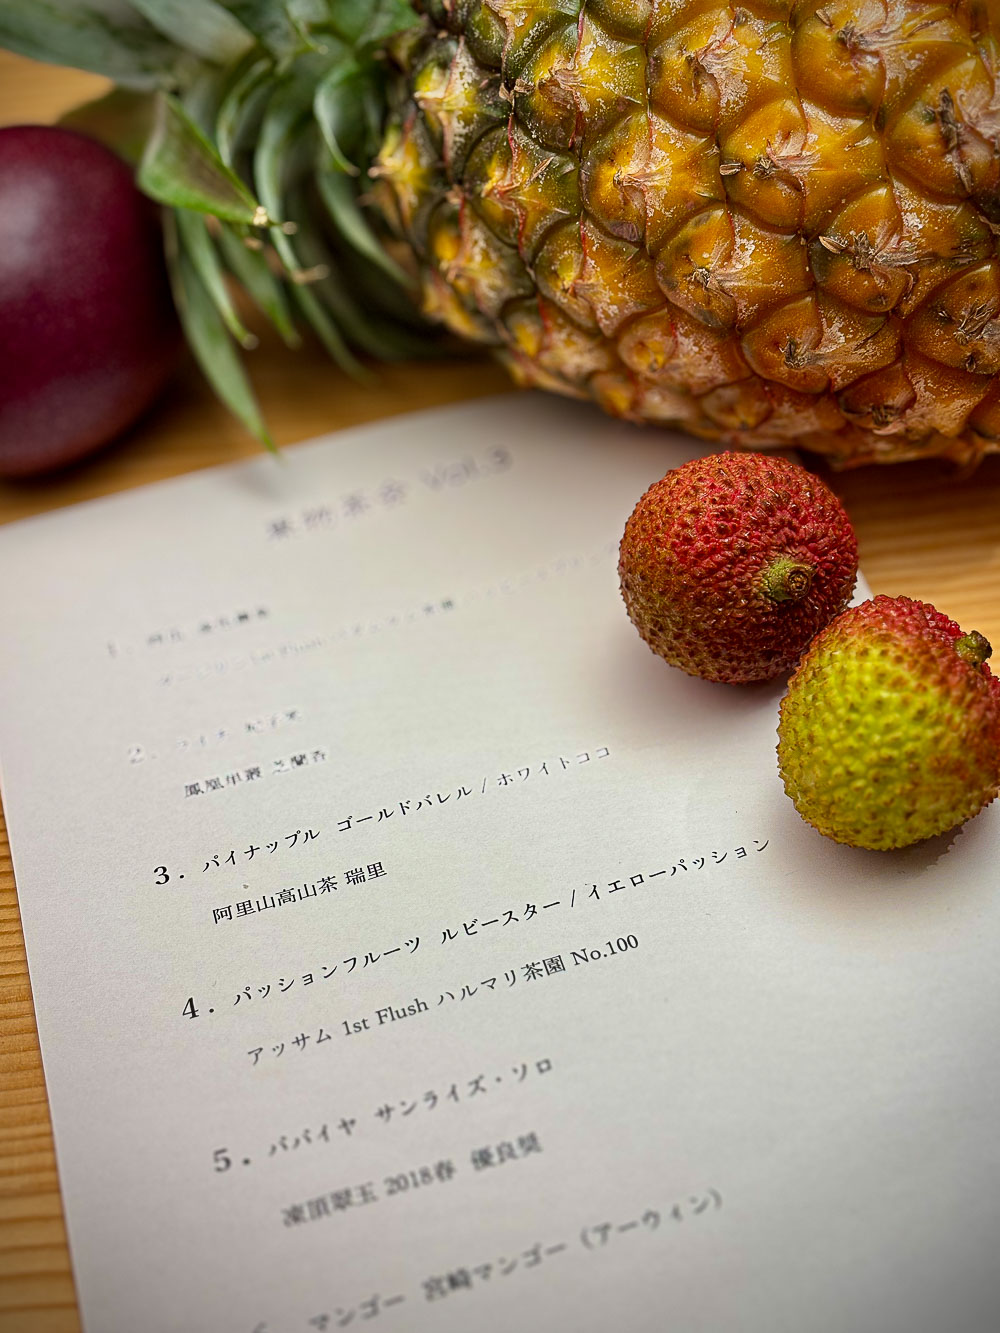 茶会 Vol.3
1.
1st Flush
2. ライチ 妃子笑
鳳凰単叢 芝蘭香
3. パイナップル ゴールドバレル / ホワイトココ
阿里山高山茶 瑞里
4. パッションフルーツ ルビースター / イエローパッション
アッサム 1st Flush ハルマリ茶園 No.100
5. パパイヤ サンライズ・ソロ
凍頂翠玉 2018春 優良奨
マンゴー 宮崎マンゴー（アーウィン）